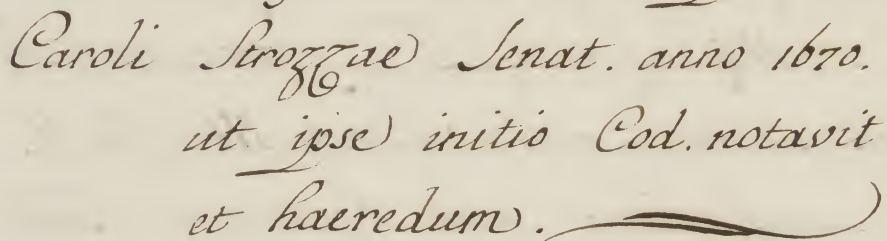 Caroli Strozzae Senat. anno 1670.
ut ipse initio Cod. notavit
et haeredum.